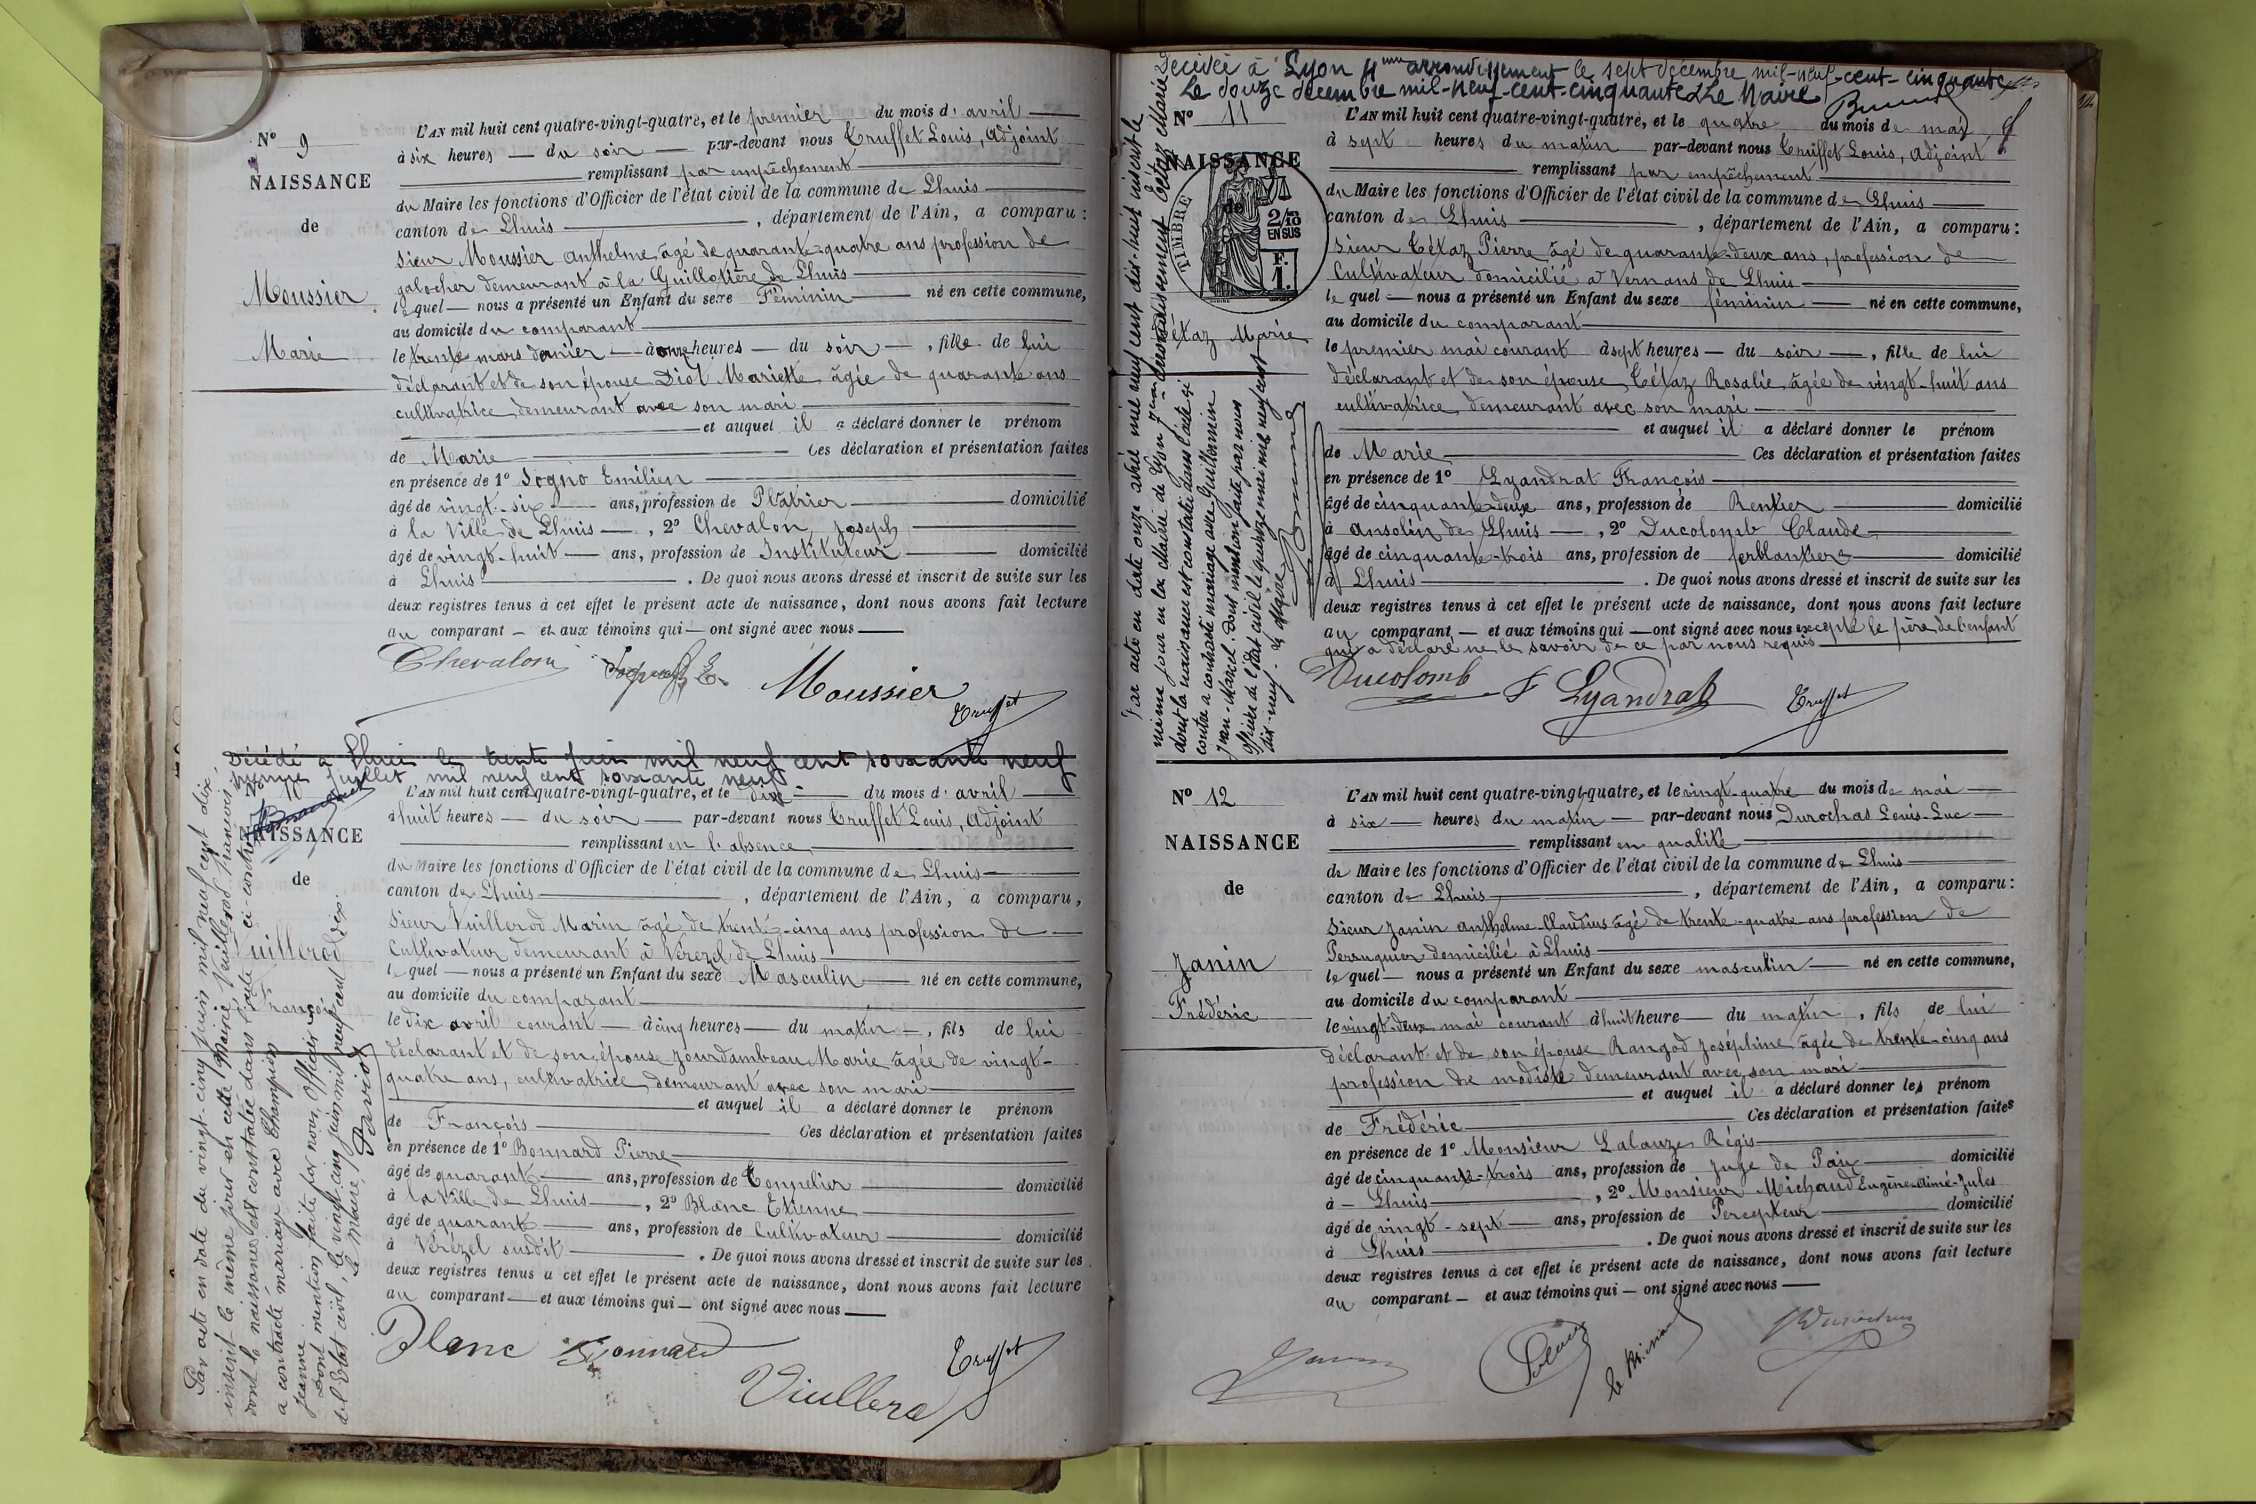 Nº 9
NAISSANCE
de
Moussier
Marie
L'AN mil huit cent quatre-vingt-quatre, et le premier du mois d'avril
à six heures du soir par-devant nous Truffet Louis, Adjoint
remplissant par empêchement
du Maire les fonctions d'Officier de l'état civil de la commune de Lhuis
canton de Lhuis, département de l'Ain, a comparu:
Sieur Moussier Anthelme âgé de quarante-quatre ans profession de
galocher demeurant à la Guillotière de Lhuis
lequel nous a présenté un Enfant du sexe Féminin né en cette commune,
au domicile du comparant
le trente mars dernier à onze heures du soir, fille de lui
déclarant et de son épouse Diot Mariette âgée de quarante ans
cultivatrice demeurant avec son mari
et auquel il a déclaré donner le prénom
de Marie Ces déclaration et présentation faites
en présence de 1º Sogno Emilien
âgé de vingt-six ans, profession de Plâtrier domicilié
à la Ville de Lhuis, 2º Chevalon Joseph
âgé de vingt-huit ans, profession de Instituteur domicilié
à Lhuis. De quoi nous avons dressé et inscrit de suite sur les
deux registres tenus à cet effet le présent acte de naissance, dont nous avons fait lecture
au comparant et aux témoins qui ont signé avec nous
Chevalon Moussier
Truffet
Décédé à Lhuis le trente juin mil neuf cent soixante neuf
premier juillet mil neuf cent soixante neuf
Nº
NAISSANCE
de
Vuillerod
François
Par acte en date du vingt-cinq juin mil neuf cent dix,
inscrit le même jour en cette Mairie, Vuillerod François
dont la naissance est constatée dans l'acte ci-contre
a contracté mariage avec Champion
Jeanne
Dont mention faite par nous, Officier
de l'Etat civil, le vingt-cinq juin mil neuf cent dix.
Le Maire, Pavio
L'AN mil huit cent quatre-vingt-quatre, et le dix du mois d'avril
à huit heures du soir par-devant nous Truffet Louis, Adjoint
remplissant en l'absence
du Maire les fonctions d'Officier de l'état civil de la commune de Lhuis
canton de Lhuis, département de l'Ain, a comparu,
Sieur Vuillerod Marin âgé de trente-cinq ans profession de
Cultivateur demeurant à Vérézel de Lhuis
lequel nous a présenté un Enfant du sexe Masculin né en cette commune,
au domicile du comparant
le dix avril courant à cinq heures du matin, fils de lui
déclarant et de son épouse Jourdambeau Marie âgée de vingt-
quatre ans, cultivatrice demeurant avec son mari
et auquel il a déclaré donner le prénom
de François Ces déclaration et présentation faites
en présence de 1º Bonnard Pierre
âgé de quarante ans, profession de Tonnelier domicilié
à la Ville de Lhuis, 2º Blanc Etienne
âgé de quarante ans, profession de Cultivateur domicilié
à Vérézel susdit. De quoi nous avons dressé et inscrit de suite sur les
deux registres tenus à cet effet le présent acte de naissance, dont nous avons fait lecture
au comparant et aux témoins qui ont signé avec nous
Blanc Bonnard
Truffet
Viullerod
Décédée à Lyon 4eme arrondissement le sept décembre mil-neuf-cent-cinquante
Le douze décembre mil-neuf-cent-cinquante Le Maire
Nº 11
NAISSANCE
de
TIMBRE
2/10
EN SUS
F.
1.
Tétaz Marie
Par acte en date onze avril mil neuf cent dix-huit inscrit le
même jour en la Mairie de Lyon arrondissement Tétaz Marie
dont la naissance est constatée dans l'acte ci
contre a contracté mariage avec Guillermin
Jean-Marcel. Dont mention faite par nous
officier de l'état civil le quinze mai mil neuf cent
dix-neuf. Le Maire
L'AN mil huit cent quatre-vingt-quatre, et le quatre du mois de mai
à sept heures du matin par-devant nous Truffet Louis, Adjoint
remplissant par empêchement
du Maire les fonctions d'Officier de l'état civil de la commune de Lhuis
canton de Lhuis, département de l'Ain, a comparu:
Sieur Tétaz Pierre âgé de quarante-deux ans, profession de
Cultivateur domicilié à Vernans de Lhuis
lequel nous a présenté un Enfant du sexe féminin né en cette commune,
au domicile du comparant
le premier mai courant à sept heures du soir, fille de lui
déclarant et de son épouse Tétaz Rosalie âgée de vingt-huit ans
cultivatrice, demeurant avec son mari
et auquel il a déclaré donner le prénom
de Marie Ces déclaration et présentation faites
en présence de 1º Lyandrat François
âgé de cinquante-deux ans, profession de Rentier domicilié
à Ansolin de Lhuis, 2º Ducolomb Claude
âgé de cinquante-trois ans, profession de ferblantier domicilié
à Lhuis. De quoi nous avons dressé et inscrit de suite sur les
deux registres tenus à cet effet le présent acte de naissance, dont nous avons fait lecture
au comparant et aux témoins qui ont signé avec nous excepté le père de l'enfant
qui a déclaré ne le savoir de ce par nous requis
Ducolomb F Lyandrat Truffet
Nº 12
NAISSANCE
de
Janin
Frédéric
L'AN mil huit cent quatre-vingt-quatre, et le vingt-quatre du mois de mai
à six heures du matin par-devant nous Durochat Louis-Luc
remplissant en qualité
de Maire les fonctions d'Officier de l'état civil de la commune de Lhuis
canton de Lhuis, département de l'Ain, a comparu:
Sieur Janin Anthelme-Claudius âgé de trente-quatre ans profession de
Perruquier domicilié à Lhuis
lequel nous a présenté un Enfant du sexe masculin né en cette commune,
au domicile du comparant
le vingt-deux mai courant à huit heure du matin, fils de lui
déclarant et de son épouse Rangod Joséphine âgée de trente-cinq ans
profession de modiste demeurant avec son mari
et auquel il a déclaré donner les prénom
de Frédéric Ces déclaration et présentation faites
en présence de 1º Monsieur Lalauze Régis
âgé de cinquante-trois ans, profession de Juge de Paix domicilié
à Lhuis, 2º Monsieur Michaud Eugène-Aimé-Jules
âgé de vingt-sept ans, profession de Percepteur domicilié
à Lhuis. De quoi nous avons dressé et inscrit de suite sur les
deux registres tenus à cet effet le présent acte de naissance, dont nous avons fait lecture
au comparant et aux témoins qui ont signé avec nous